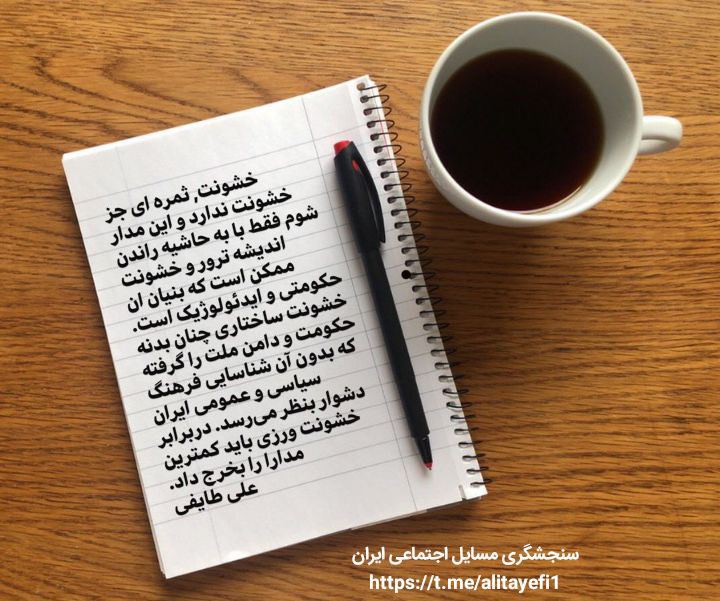 خشونت, ثمره ای جز
خشونت ندارد و این مدار
شوم فقط با به حاشیه راندن
اندیشه ترور و خشونت
ممکن است که بنیان ان
حکومتی و ایدئولوژیک است.
خشونت ساختاری چنان بدنه
حکومت و دامن ملت را گرفته
که بدون آن شناسایی فرهنگ
سیاسی و عمومی ایران
دشوار بنظر می‌رسد. دربرابر
خشونت ورزی باید کمترین
مدارا را بخرج داد.
علی طایفی
سنجشگری مسایل اجتماعی ایران
https://t.me/alitayefi1